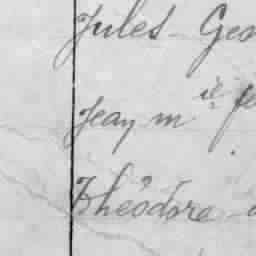 Jules Geo
Jean m ie fe
Théodore